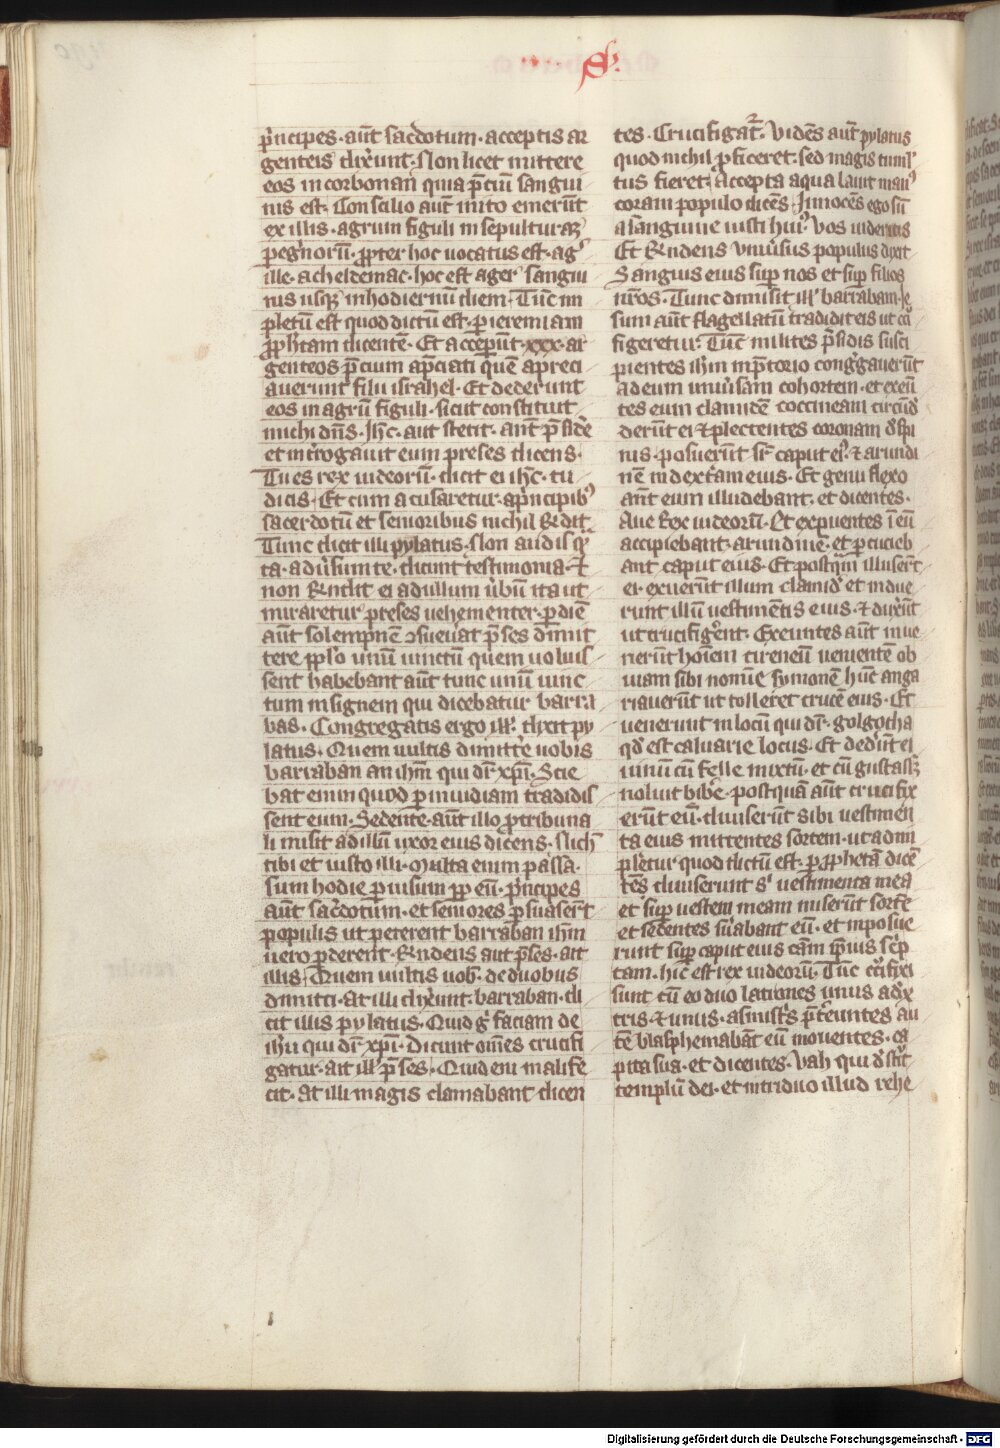 S.
p̄ncipes · aūt sac̄dotum · acceptis ar
genteis dix̄unt · Non licet mittere
eos in corbonan̄ quia p̄ciū sangui
nis est · Consilio aūt inito emerūt
ex illis · agrum figuli in sepulturaꝫ
pegͥnorū · ꝓpter hoc uocatus est · agꝰ
ille · acheldemac · hoc est ager sangui
nis usqꝫ in hodiernū diem · Tūc im
pletū est quod dictū est · ꝑ ieremiam
ꝓph̄tam dicentē · Et acceperūt · xxx · ar
genteos p̄cium ap̄ciati quē apreci
auerunt filii israhel · Et dederunt
eos in agrū figuli · sicut constituit
michi dn̄s · Ih̄c · aut stetit · ant̄ p̄sidē
et int̄rogauit eum preses dicens ·
Tu es rex iudeorū · dicit ei ih̄c · tu
dicis · Et cum acusaretur · a p̄ncipibꝰ
sacerdotū et senioribus nichil Rn̄dit ·
Tunc dicit illi pylatus · Non audis qͣn
ta · adūsum te · dicunt testimonia · ⁊
non Rn̄dit ei ad ullum ūbū ita ut
miraretur preses uehementer · ꝑ diē
aūt solempnē ꝯsueuat p̄ses dimit
tere pplo unū uinctū quem uoluis
sent habebant aūt tunc unū uinc
tum insignem qui dicebatur barra
bas · Congregatis ergo ill̄ · dixit py
latus · Quem uultis dimitt̄e uobis
barraban an ih̄m qui dr̄ xp̄m · Scie
bat enim quod ꝑ inuidiam tradidis
sent eum · Sedente · aūt illo ꝓ tribuna
li misit ad illū uxor eius dicens · Nich̄
tibi et iusto illi · Multa enim passa ·
sum hodie ꝑ uisum ꝓp eū · p̄ncipes
aūt sac̄dotum · et seniores ꝑsuaser̄t
populis ut peterent barraban ih̄m
uero ꝑderent · Rn̄dens aut p̄ses · ait
illis · Quem uultis uob̄ · de duobus
dimitti · At illi dix̄unt · barraban · di
cit illis pylatus · Quid gͥ faciam de
ih̄u qui dr̄ xp̄m · Dicunt om̄es crucifi
gatur · ait ill̄ p̄ses · Quid eni mali fe
cit · At illi magis clamabant dicen
tes · Crucifigat᷑ · Vidēs aūt pylatus
quod nichil ꝓficeret · sed magis tumlͥ
tus fieret · Accepta aqua lauit manꝰ
coram populo dicēs · Innocēs ego sū
a sanguine iusti huiꝰ · Vos uideritis
Et Rn̄dens uniūsus populus dixit
Sangius eius suꝑ nos et suꝑ filios
nr̄os · Tunc dimisit ill̄ barrabam · Ie
sum aūt flagellatū tradidit eis ut cͦu
figeretur · Tūc milites p̄sidis susci
pientes ih̄m in p̄torio congͥgauerūt
ad eum uniūsam cohortem · et exeū
tes eum clamidē coccineam circūd̄
derūt ei ⁊ plectentes coronam d̄ spi
nis · posuerūt sr̄ caput eiꝰ · ⁊ arundi
nē in dext̄am eius · Et genu flexo
an̄t eum illudebant · et dicentes ·
Aue Rex iudeorū · Et expuentes ī eū
accipiebant arundinē · et ꝑcucieb
ant caput eius · Et postqͣm illuser̄t
ei · exuerūt illum clamid̄ et indue
runt illū uestimētis eius · ⁊ dux̄ūt
ut crucifiḡent · Exeuntes aūt inue
nerūt hoīem cireneū uenientē ob
uiam sibi nomīe symonē hūc anga
riauerūt ut tolleret crucē eius · Et
uenerunt in locū qui dr̄ · golgotha
qd̄ est caluarie locus · Et dedūt ei
uinū cū felle mixtū · et cū gustasꝫ
noluit bib̄e · postquā aūt crucifix
erūt eū · diuiserūt sibi uestimen
ta eius mittentes sortem · ut adim
pletur quod dictū est · ꝑ ꝓphetā dicē
tēs diuiserunt sͥ uestimenta mea
et suꝑ uestem meam miserūt sorte
et sedentes s̄uabant eū · et imposue
runt suꝑ caput eius cām ip̄ius sc̄p
tam · hic est rex iudeorū · Tūc cͦcifixi
sunt cū eo duo latrones unus a dx̄
tris · ⁊ unus · a sinistͥs p̄t̄euntes au
tē blasphemabāt eū mouentes · ca
pita sua · et dicentes · Vah qui d̄stͥit
templū dei · et in triduo illud rehe
Digitalisierung gefördert durch die Deutsche Forschungsgemeinschaft - DFG